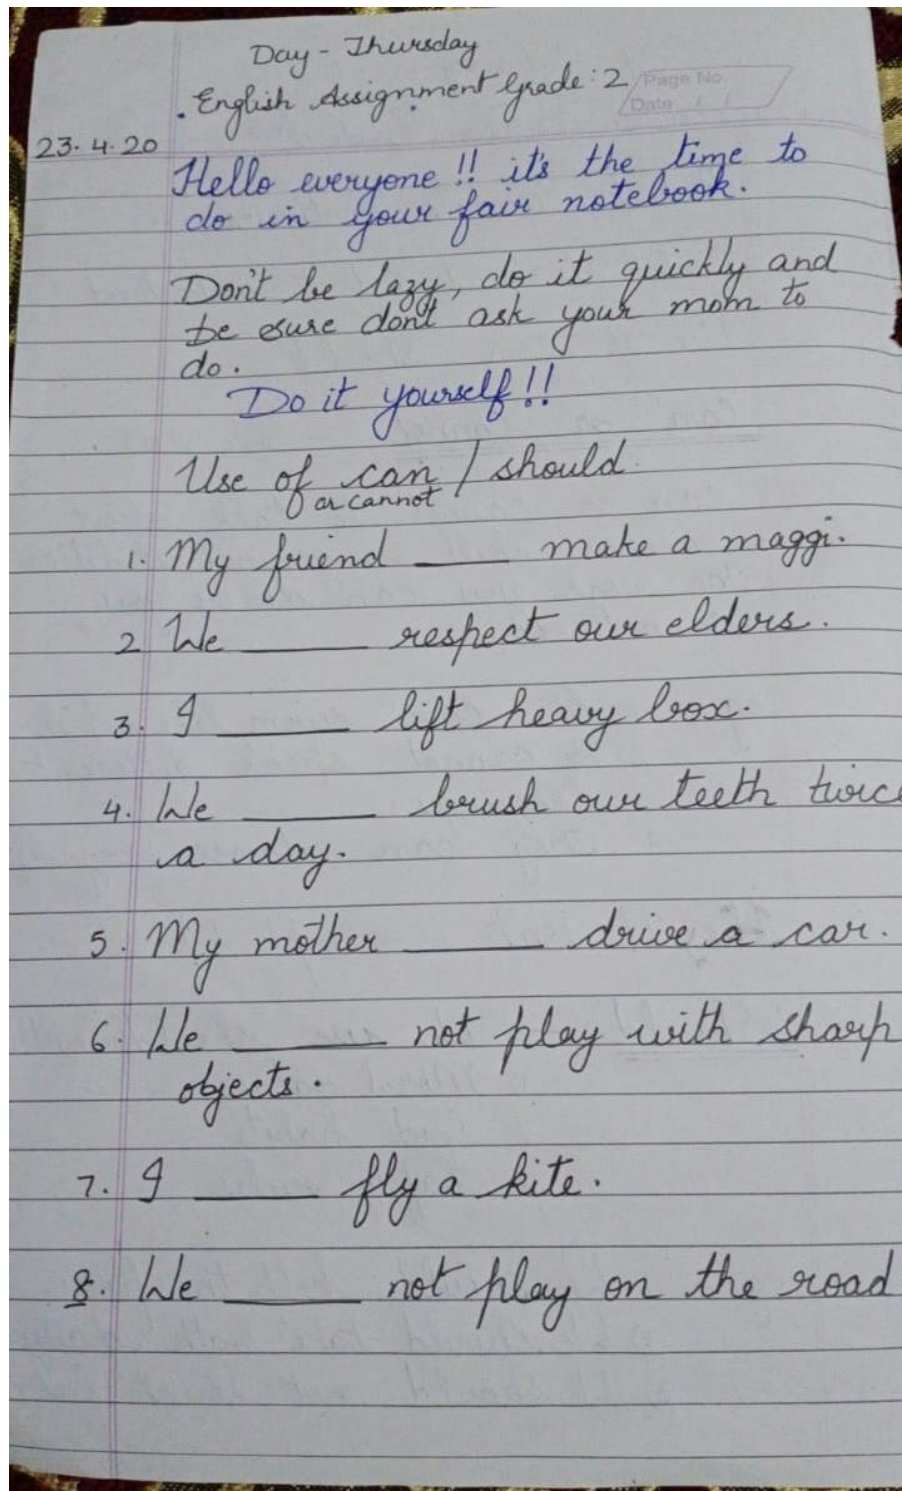 Day - Thursday
English Assignment Grade: 2
Page No
Date / /
23.4.20
Hello everyone!! it's the time to
do in your fair notebook.
Don't be lazy, do it quickly and
be sure don't ask your mom to
do.
Do it yourself!!
Use of can / should
or cannot
1. My friend ____ make a maggi.
2 We ____ respect our elders.
3. I ____ lift heavy box.
4. We ____ brush our teeth twice
a day.
5. My mother ____ drive a car.
6. We ____ not play with sharp
objects.
7. I ____ fly a kite.
8. We ____ not play on the road